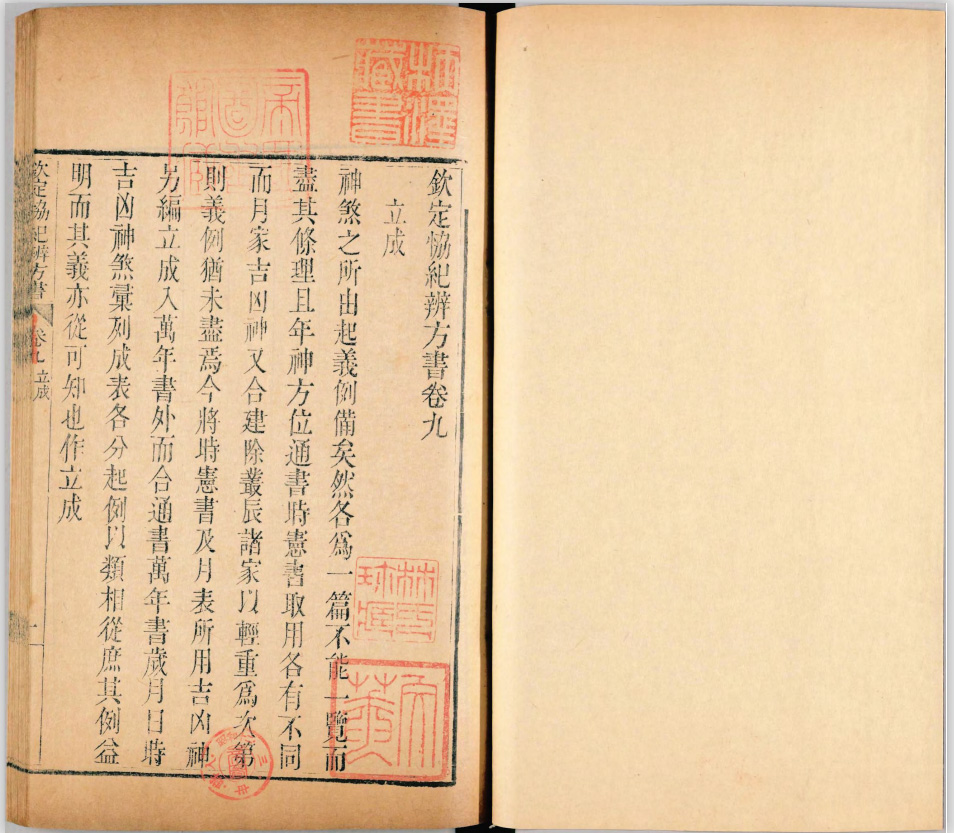 欽定協紀辨方書卷九
立成
神煞之所由起義例備矣然各爲一篇不能一覽而
盡其條理且年神方位通書時憲書取用各有不同
而月家吉凶神又合建除叢辰諸家以輕重爲次第
則義例猶未盡焉今將時憲書及月表所用吉凶神
另編立成入萬年書外而合通書萬年書歲月日時
吉凶神煞彙列成表各分起例以類相從庶其例益
明而其義亦從可知也作立成
欽定協紀辨方書
卷九 立成
一
藏書